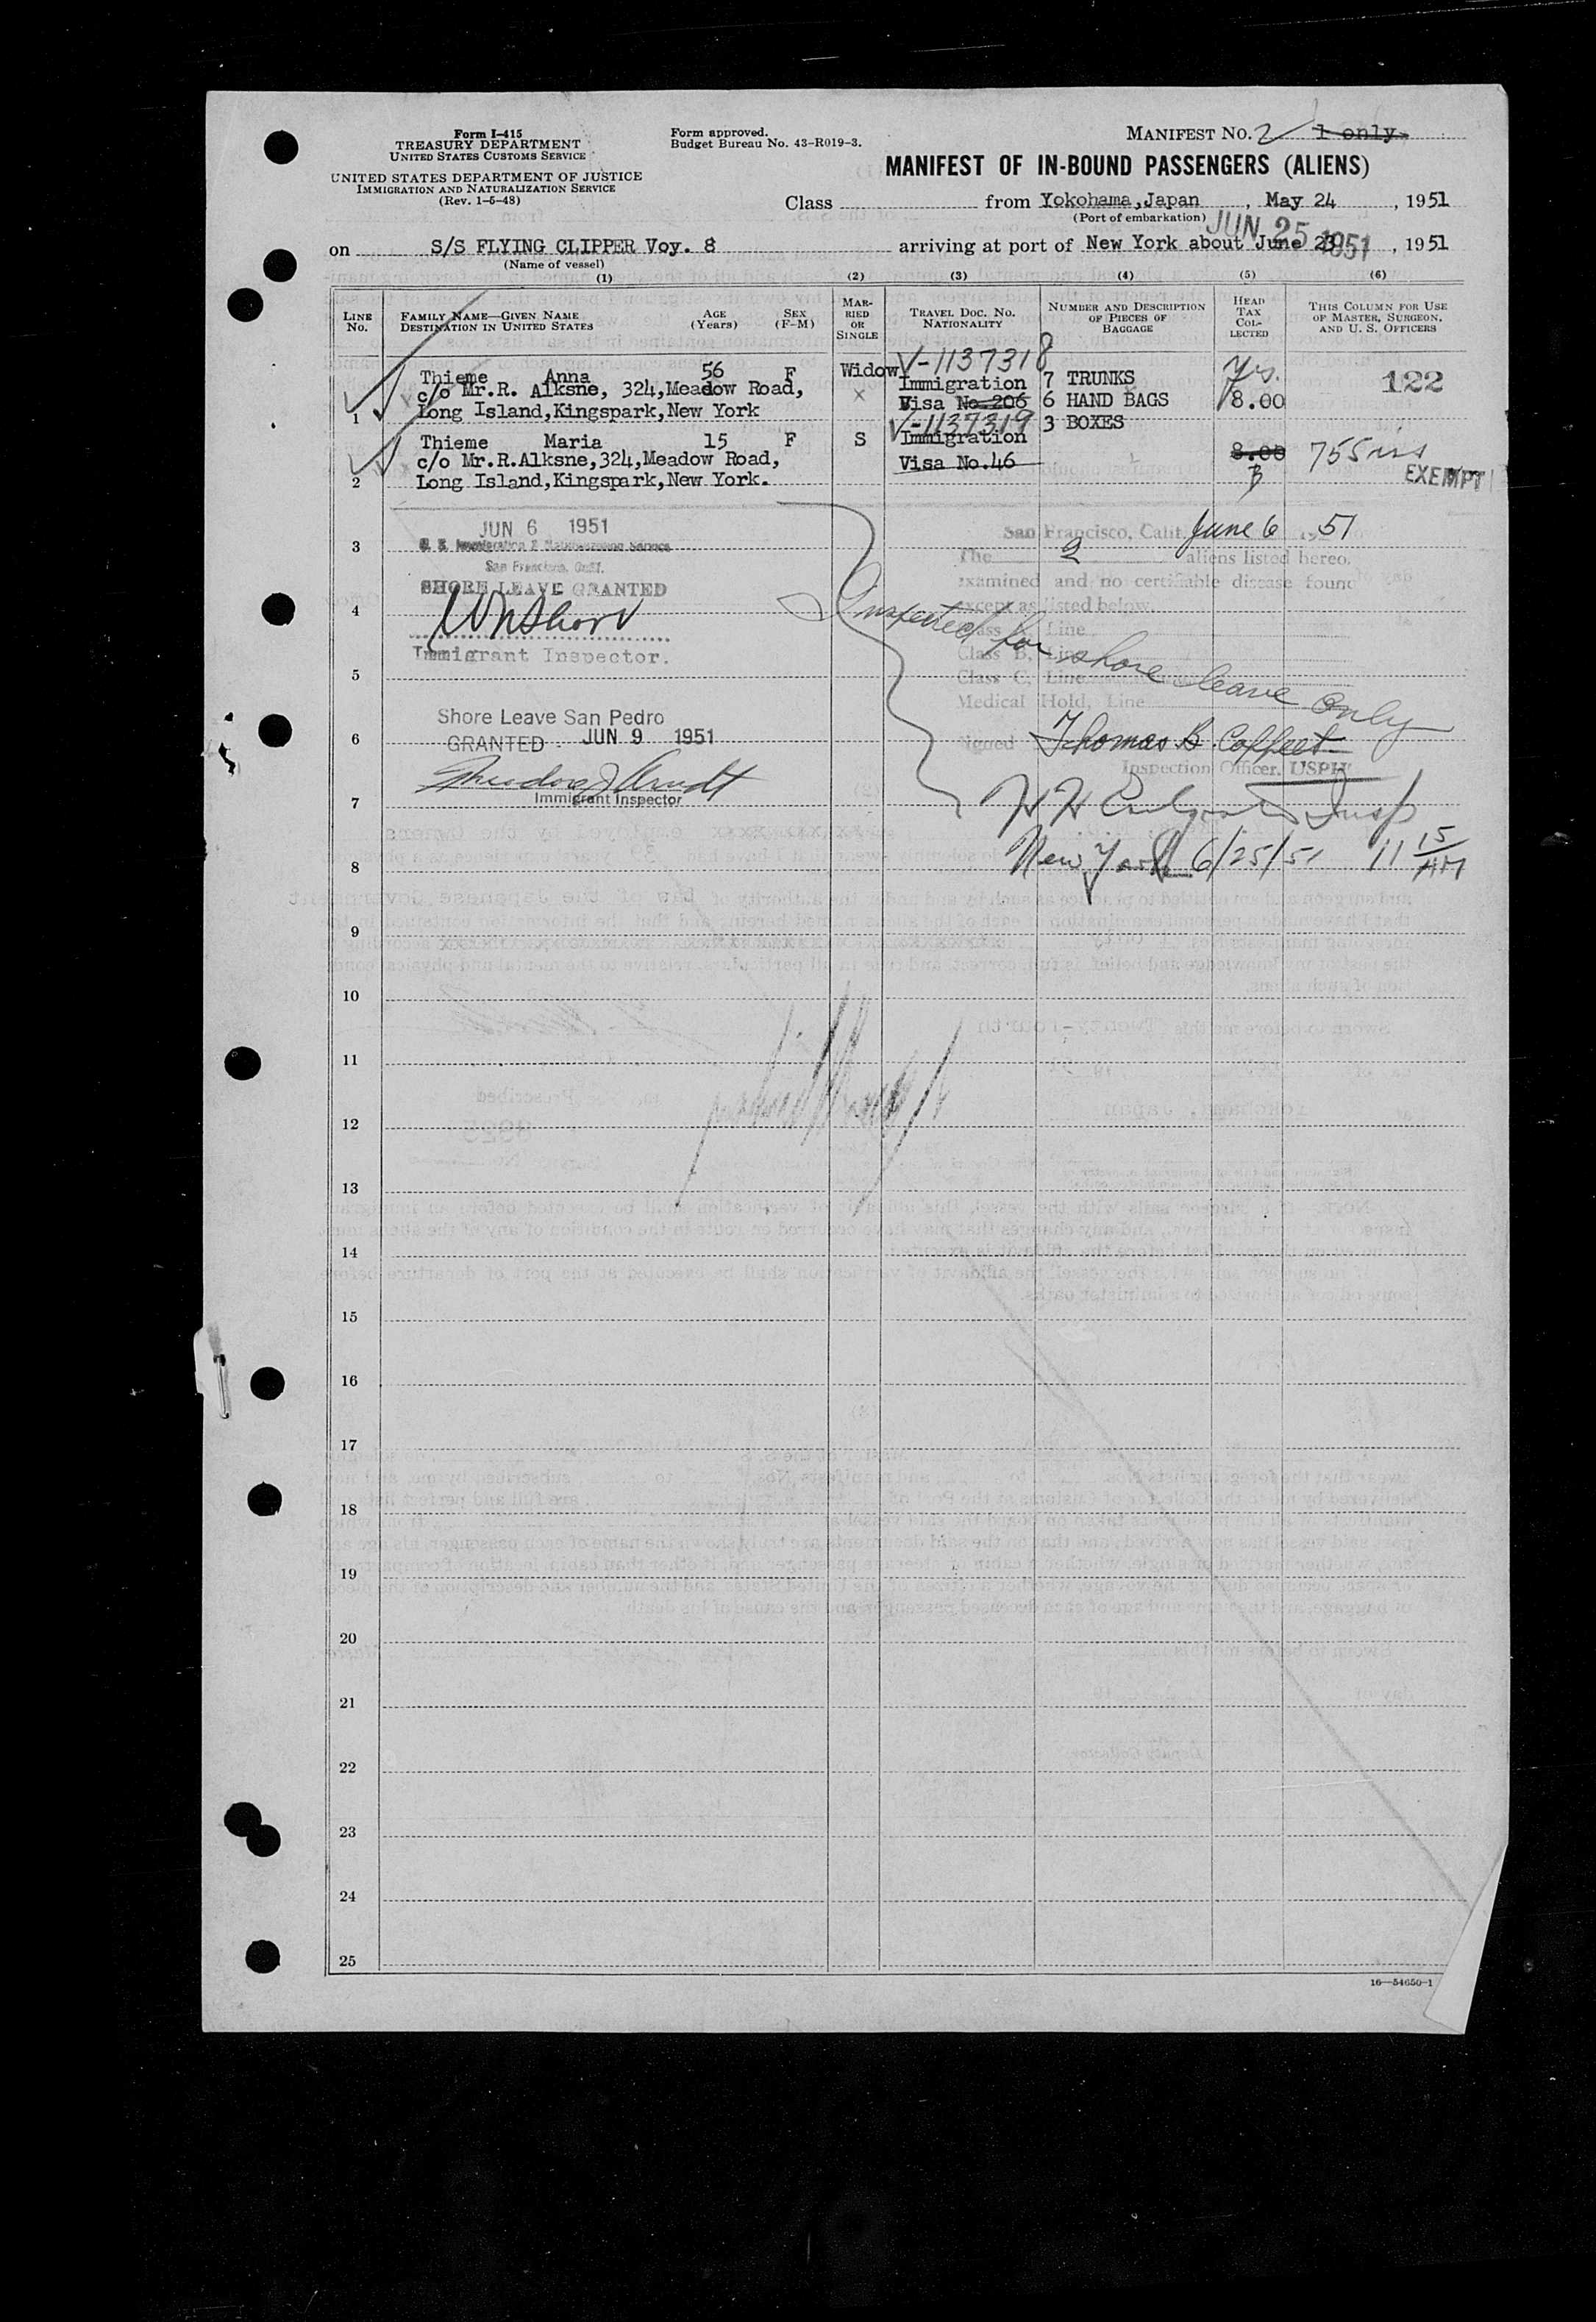 Form I-415
TREASURY DEPARTMENT
UNITED STATES CUSTOMS SERVICE
UNITED STATES DEPARTMENT OF JUSTICE
IMMIGRATION AND NATURALIZATION SERVICE
(Rev. 1-5-48)
Form approved.
Budget Bureau No. 43-R019-3.
MANIFEST NO. 2 1 only
MANIFEST OF IN-BOUND PASSENGERS (ALIENS)
Class from Yokohama,Japan , May 24 , 1951
(Port of embarkation)
JUN 25 1951
on S/S FLYING CLIPPER Voy. 8 arriving at port of New York about June 23 , 1951
(Name of vessel)
(1) (2) (3) (4) (5) (6)
LINE No.
FAMILY NAME—GIVEN NAME
DESTINATION IN UNITED STATES
AGE (Years)
SEX (F-M)
MARRIED OR SINGLE
TRAVEL DOC. NO.
NATIONALITY
NUMBER AND DESCRIPTION OF PIECES OF BAGGAGE
HEAD TAX COLLECTED
THIS COLUMN FOR USE OF MASTER, SURGEON, AND U. S. OFFICERS
V-1137318
Thieme Anna 56 F Widow Immigration 7 TRUNKS Yes. 122
c/o Mr.R. Alksne, 324,Meadow Road, Visa No. 206 6 HAND BAGS 8.00
1 Long Island,Kingspark,New York
V-1137319 3 BOXES
Thieme Maria 15 F S Immigration
c/o Mr.R.Alksne,324,Meadow Road, Visa No.46 8.00 755
2 Long Island,Kingspark,New York. EXEMPT
JUN 6 1951
3 U. S. Immigration & Naturalization Service
San Francisco, Calif.
SHORE LEAVE GRANTED
4
Immigrant Inspector.
San Francisco, Calif. June 6 1951
The 2 aliens listed hereo.
examined and no certifiable disease found
except as listed below
Class A, Line
Class B, Line
Class C, Line
Medical Hold, Line
Inspected for shore leave only
5
Shore Leave San Pedro
6 GRANTED JUN 9 1951
Signed Thomas B.
Inspection Officer, USPH
7 Immigrant Inspector
Insp
8 New York 6/25/51 11 15 AM
9
10
11
12
13
14
15
16
17
18
19
20
21
22
23
24
25
16—54650-1